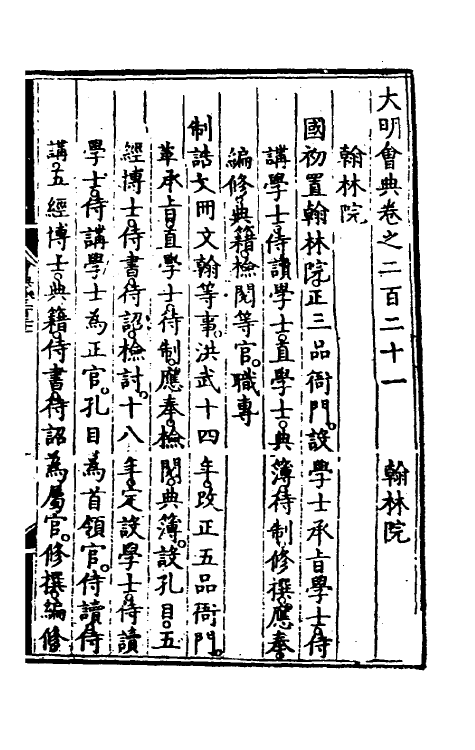 大明會典卷之二百二十一　翰林院
翰林院
國初置翰林院正三品衙門。設學士承旨學士侍
講學士。侍讀學士。直學士。典簿。待制。修撰。應奉。
編修。典籍。檢閱等官。職專
制誥文冊文翰等事。洪武十四年。改正五品衙門。
革承旨。直學士。待制。應奉。檢閱。典簿。設孔目。五
經博士。侍書。待詔。檢討。十八年。定設學士。侍讀
學士。侍講學士為正官。孔目為首領官。侍讀。侍
講。五經博士。典籍。侍書。待詔為屬官。修撰。編修